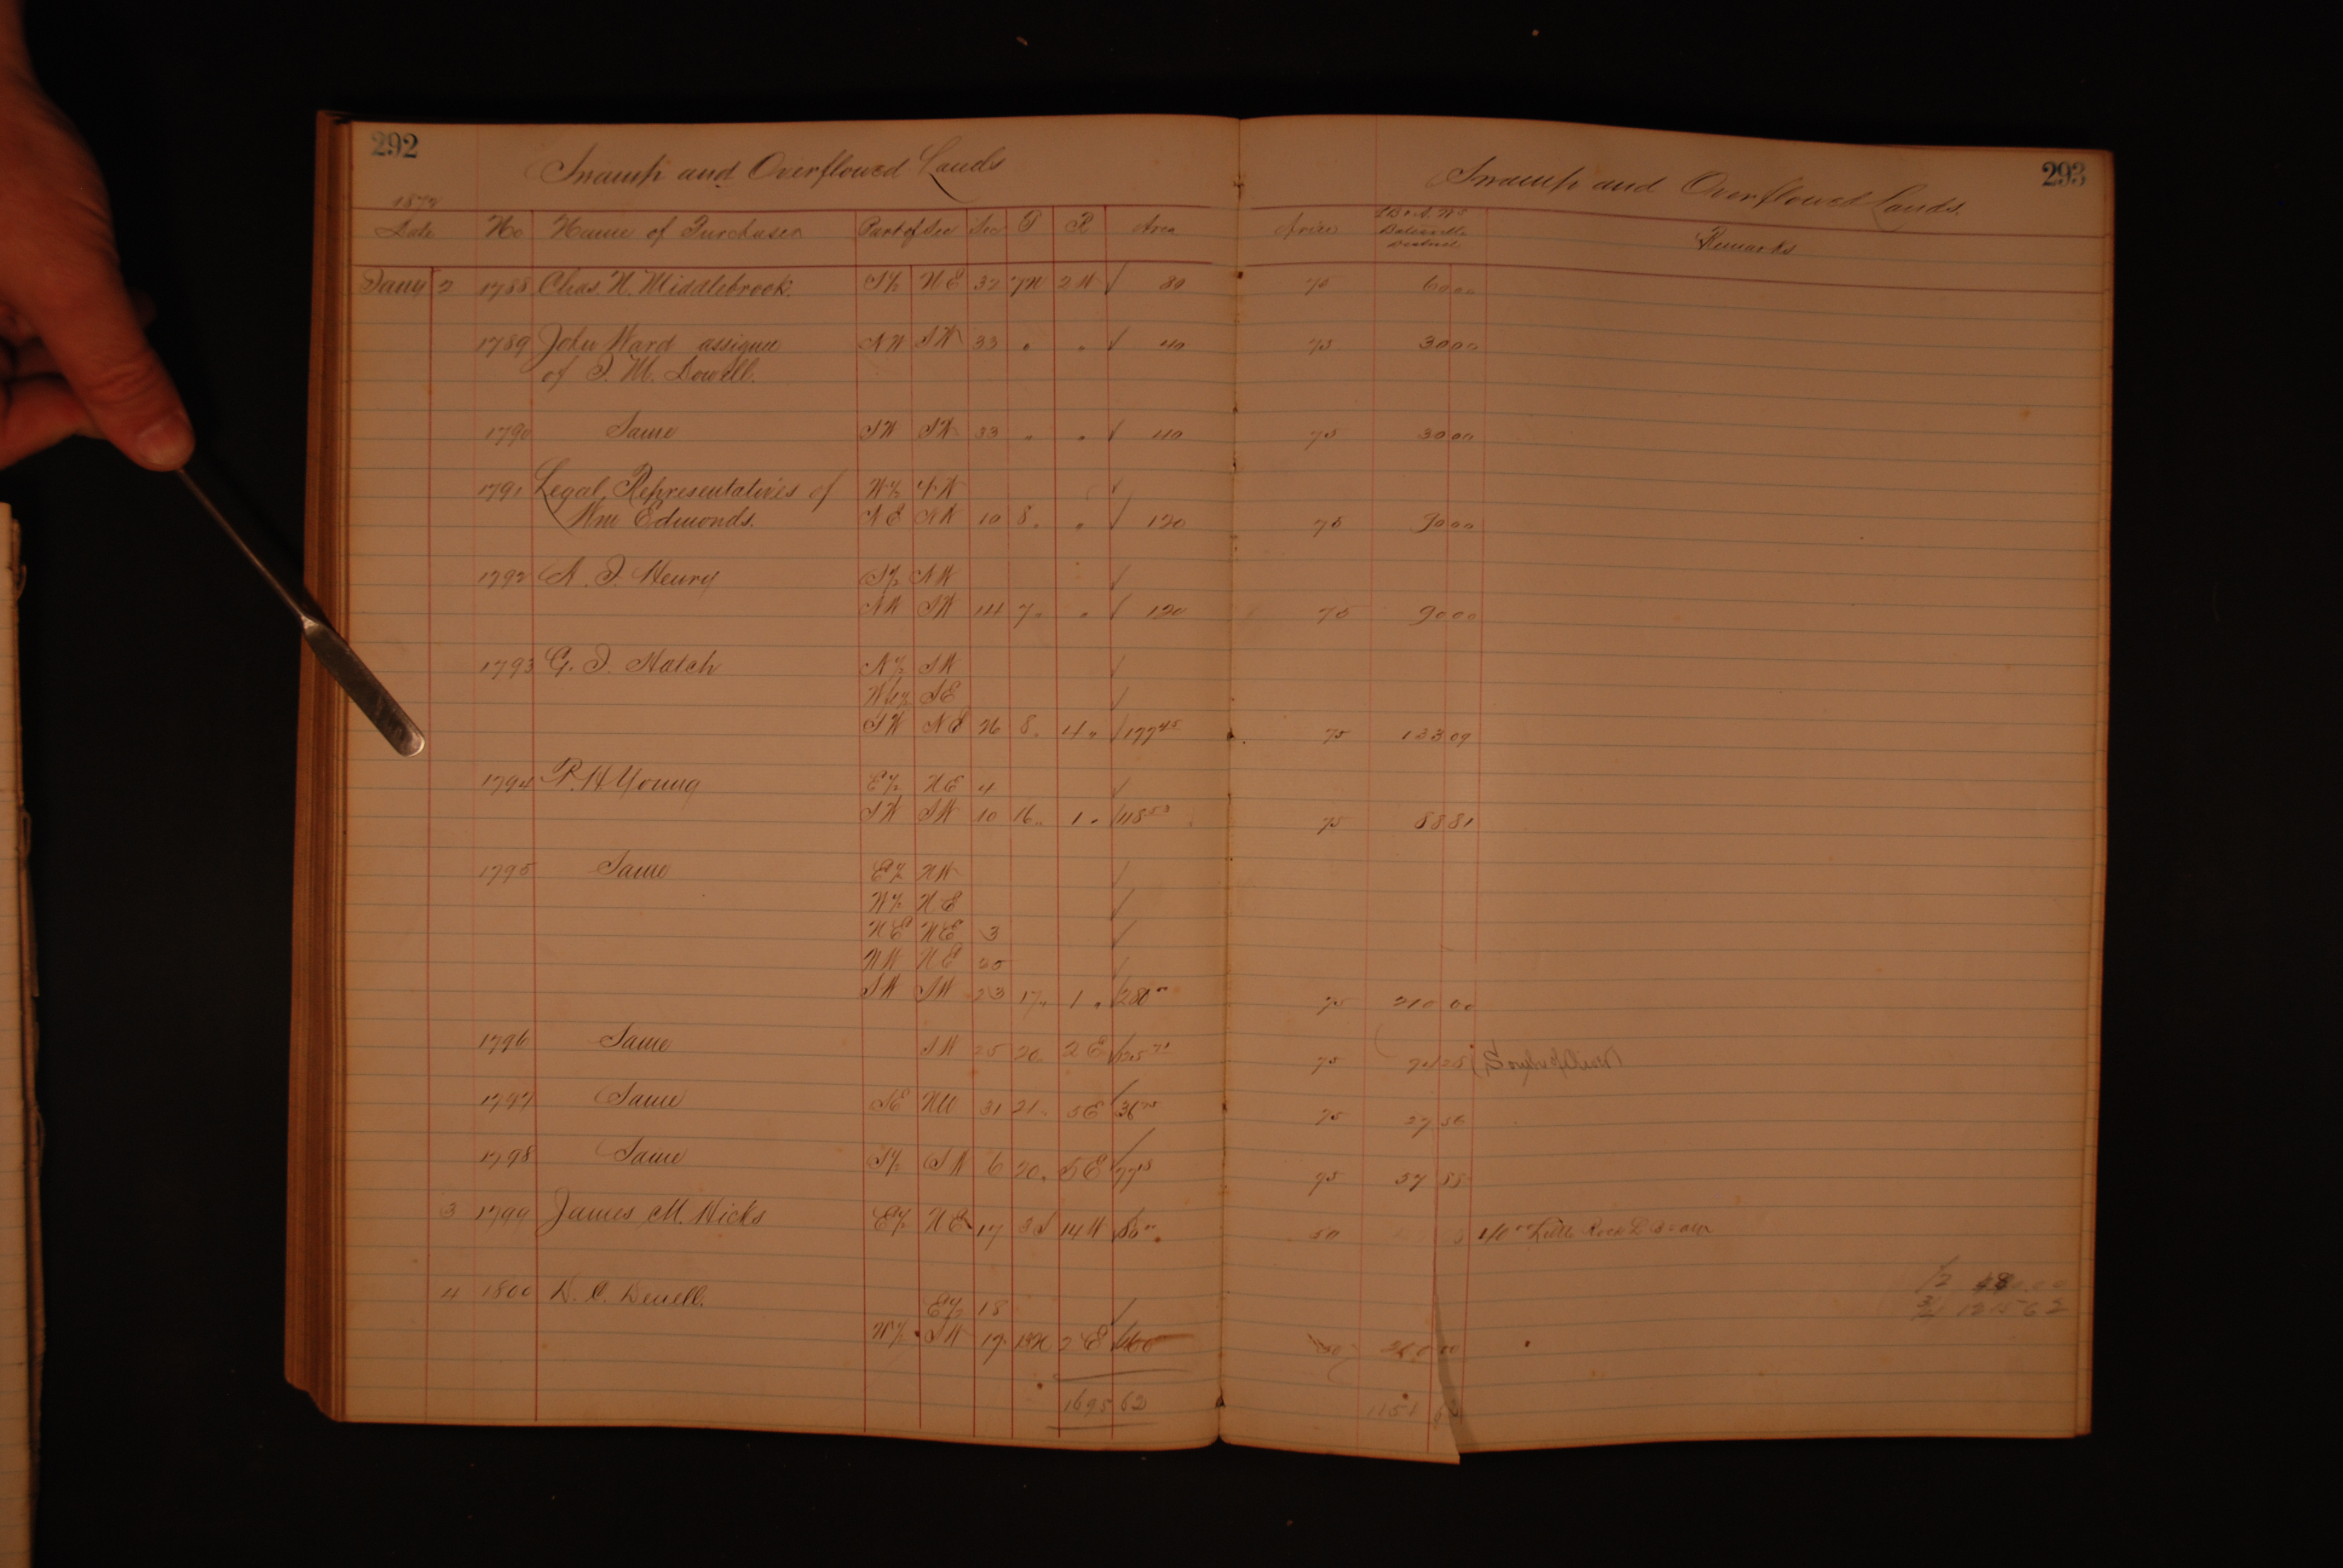 292
Swamp and Overflowed Lands
Swamp and Overflowed Lands.
293
1872
Date No Name of Purchaser Part of Sec Sec T R Area Price District Remarks
Jany 2 1788 Chas N. Middlebrook. S½ NE 32 7N 2W 80 75 6000
1789 John Ward assignee NW SW 33 " " 40 75 3000
of T. M. Dowell.
1790 Same SW SW 33 " " 40 75 3000
1791 Legal Representatives of W½ NW
Wm Edmonds. NE NW 10 8 " " 120 75 9000
1792 A. J. Henry S½ NW
NW SW 14 7 " " 120 75 9000
1793 G. T. Hatch N½ SW
W½ SE
SW NE 26 8 " 4 " 177 45 75 133 09
1794 P. H. Young E½ NE 4
SW SW 10 16 " 1 " 118 75 88 81
1795 Same E½ NW
W½ NE
NE NE 3
NW NE
SW SW 23 17 " 1 " 280 00 75 210 00
1796 Same SW 25 20 " 2 E 125 71 75
1797 Same SE NW 31 21 " 5E 36 75 75 27 56
1798 Same S½ SW 6 20 " 5 E 77 18 75 57 88
3 1799 James M. Hicks E½ NE 17 3S 14W 80 00 50
4 1800 D. C. Dewell. E½ 18
W½ SW 17 2 E
1/2 48000
3/4 1215 62
1695 62
1151